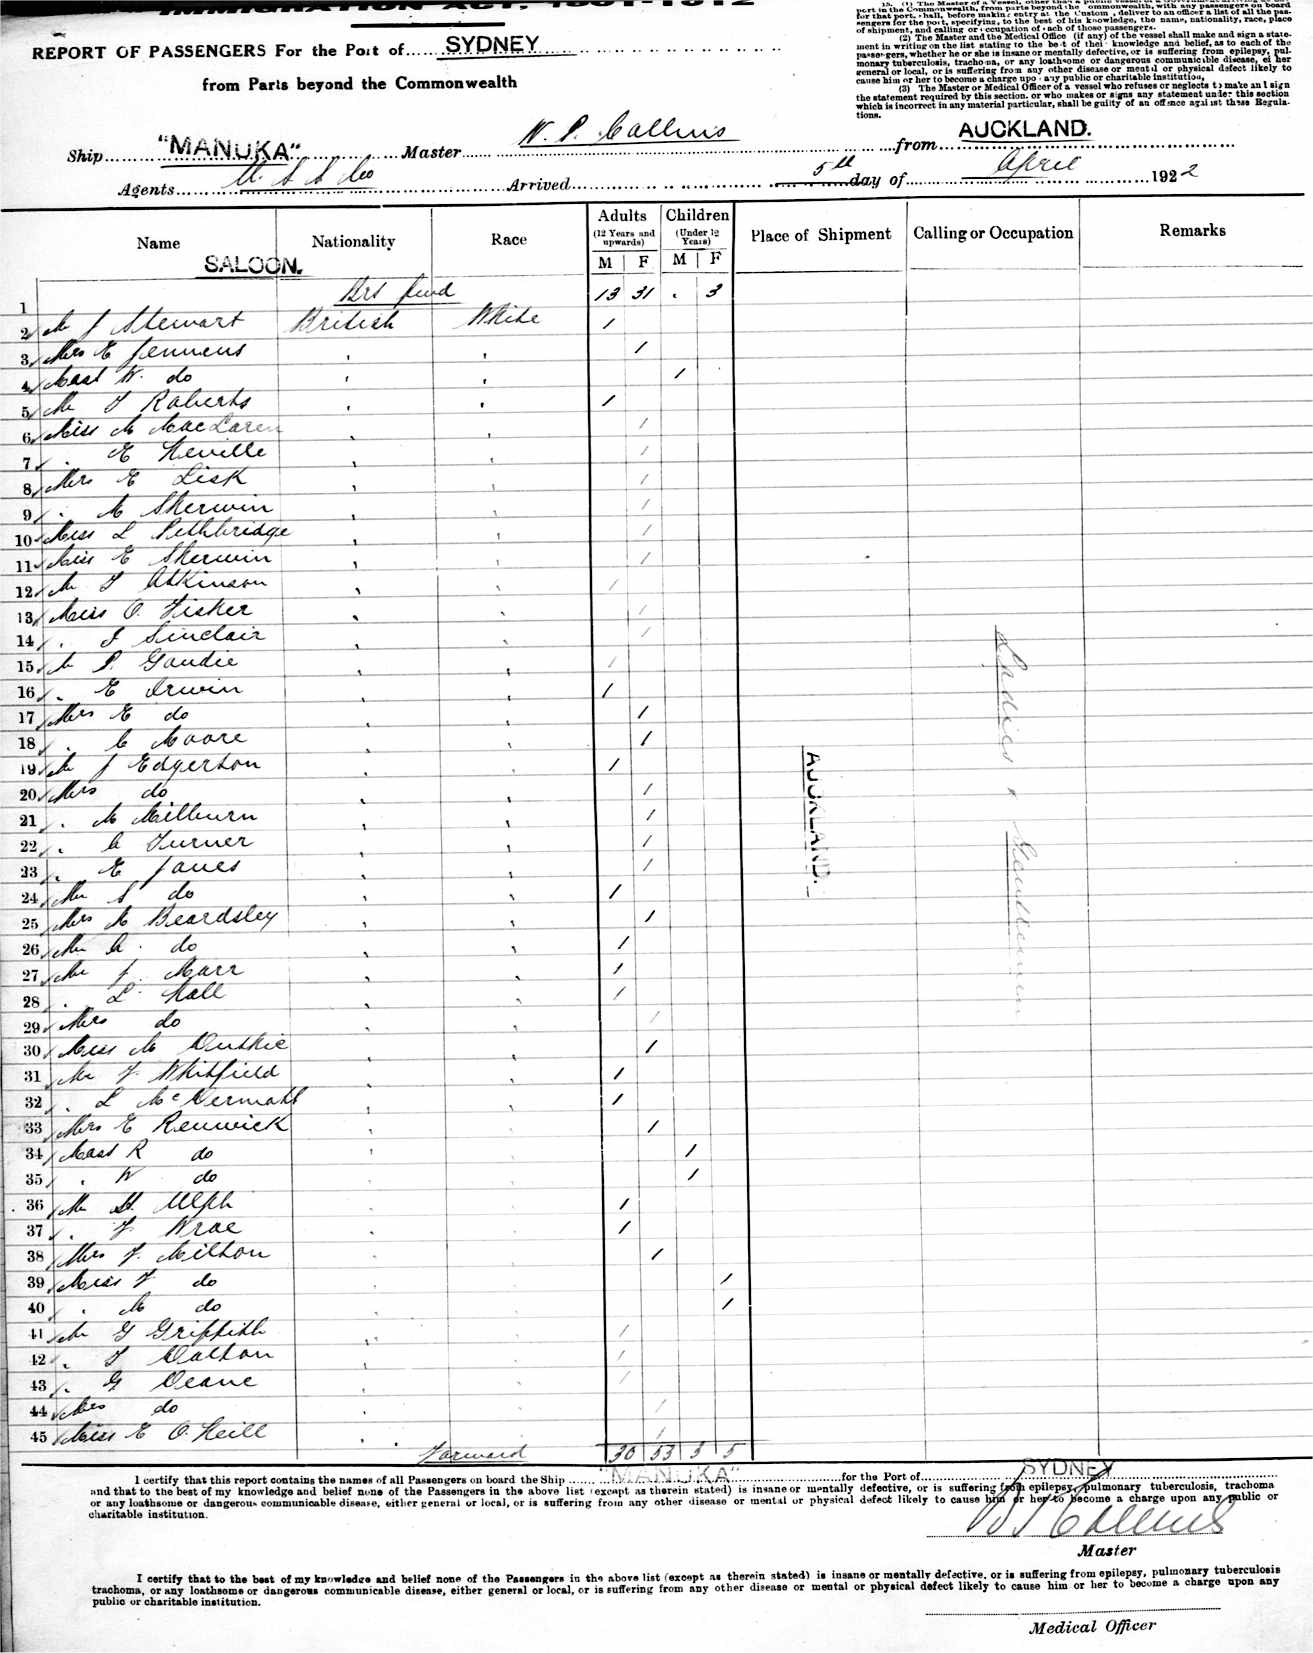 IMMIGRATION ACT, 1901-1912
15. (1) The Master of a Vessel, other than a public vessel of a
port in the Commonwealth, from parts beyond the Commonwealth, with any passengers on board
for that port, shall, before making entry at the Customs, deliver to an officer a list of all the pas-
sengers for the port, specifying, to the best of his knowledge, the name, nationality, race, place
of shipment, and calling or occupation of each of those passengers.
(2) The Master and the Medical Office (if any) of the vessel shall make and sign a state-
ment in writing on the list stating to the best of their knowledge and belief, as to each of the
passengers, whether he or she is insane or mentally defective, or is suffering from epilepsy, pul-
monary tuberculosis, trachoma, or any loathsome or dangerous communicable disease, either
general or local, or is suffering from any other disease or mental or physical defect likely to
cause him or her to become a charge upon any public or charitable institution,
(3) The Master or Medical Officer of a vessel who refuses or neglects to make and sign
the statement required by this section, or who makes or signs any statement under this section
which is incorrect in any material particular, shall be guilty of an offence against these Regula-
tions.
REPORT OF PASSENGERS For the Port of SYDNEY
from Parts beyond the Commonwealth
Ship "MANUKA" Master W. P. Collins from AUCKLAND.
Agents U S S Co Arrived 5th day of April 1922
Name Nationality Race Adults (12 Years and upwards) M F Children (Under 12 Years) M F Place of Shipment Calling or Occupation Remarks
SALOON.
1 Brt fwd 13 31 . 3
2 Mr J Stewart British White /
3 Mrs E Jennens ' ' /
4 Mast W. do ' ' /
5 Mr T Roberts ' ' /
6 Miss M MacLaren ' ' /
7 . E Neville ' ' /
8 Mrs E Lisk ' ' /
9 . M Sherwin ' ' /
10 Miss L Pethbridge ' ' /
11 Miss E Sherwin ' ' /
12 Mr T Atkinson ' ' /
13 Miss O. Fisher ' ' /
14 . J Sinclair ' ' /
15 Mr P. Goudie ' ' /
16 . E Irwin ' ' /
17 Mrs E do ' ' /
18 . C Moore ' ' /
19 Mr J Edgerton ' ' /
20 Mrs do ' ' /
21 . M Milburn ' ' /
22 . C Turner ' ' /
23 . E Jones ' ' /
24 Mr S do ' ' /
25 Mrs M Beardsley ' ' /
26 Mr A. do ' ' /
27 Mr J. Marr ' ' /
28 . L Hall ' ' /
29 Mrs do ' ' /
30 Miss M Duthie ' ' /
31 Mr F Whitfield ' ' /
32 . L McDermott ' ' /
33 Mrs E Renwick ' ' /
34 Mast R do ' ' /
35 . W do /
36 Mr H. Ulph ' ' /
37 . F. Wrae ' ' /
38 Mrs F. Milton ' ' /
39 Miss F do ' ' /
40 . M do ' ' /
41 Mr G Griffith ' ' /
42 . T Dalton ' ' /
43 . G Deane ' ' /
44 Mrs do ' ' /
45 Miss E O.Neill ' ' /
AUCKLAND.
Ladies & Gentlemen
Forward 30 53 3 5
I certify that this report contains the names of all Passengers on board the Ship "MANUKA" for the Port of SYDNEY
and that to the best of my knowledge and belief none of the Passengers in the above list (except as therein stated) is insane or mentally defective, or is suffering from epilepsy, pulmonary tuberculosis, trachoma
or any loathsome or dangerous communicable disease, either general or local, or is suffering from any other disease or mental or physical defect likely to cause him or her to become a charge upon any public or
charitable institution.
W P Collins
Master
I certify that to the best of my knowledge and belief none of the Passengers in the above list (except as therein stated) is insane or mentally defective, or is suffering from epilepsy, pulmonary tuberculosis
trachoma, or any loathsome or dangerous communicable disease, either general or local, or is suffering from any other disease or mental or physical defect likely to cause him or her to become a charge upon any
public or charitable institution.
Medical Officer